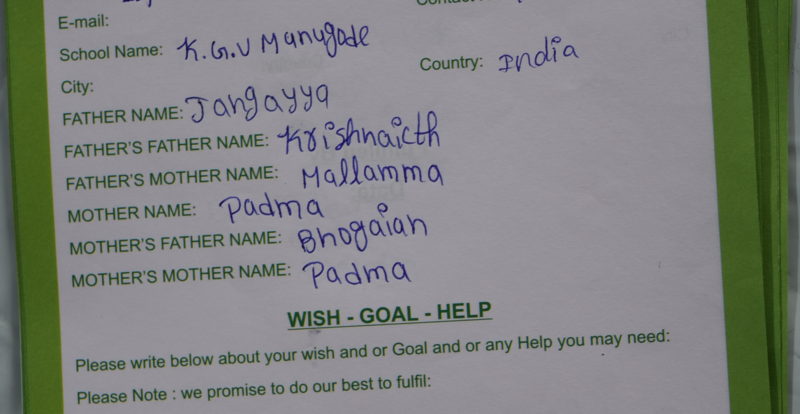 E-mail:
School Name: K.G.V Manugode
City:
Country: India
FATHER NAME: Jangayya
FATHER'S FATHER NAME: Krishnaicth
FATHER'S MOTHER NAME: Mallamma
MOTHER NAME: Padma
MOTHER'S FATHER NAME: Bhogaian
MOTHER'S MOTHER NAME: Padma
WISH - GOAL - HELP
Please write below about your wish and or Goal and or any Help you may need:
Please Note : we promise to do our best to fulfil: